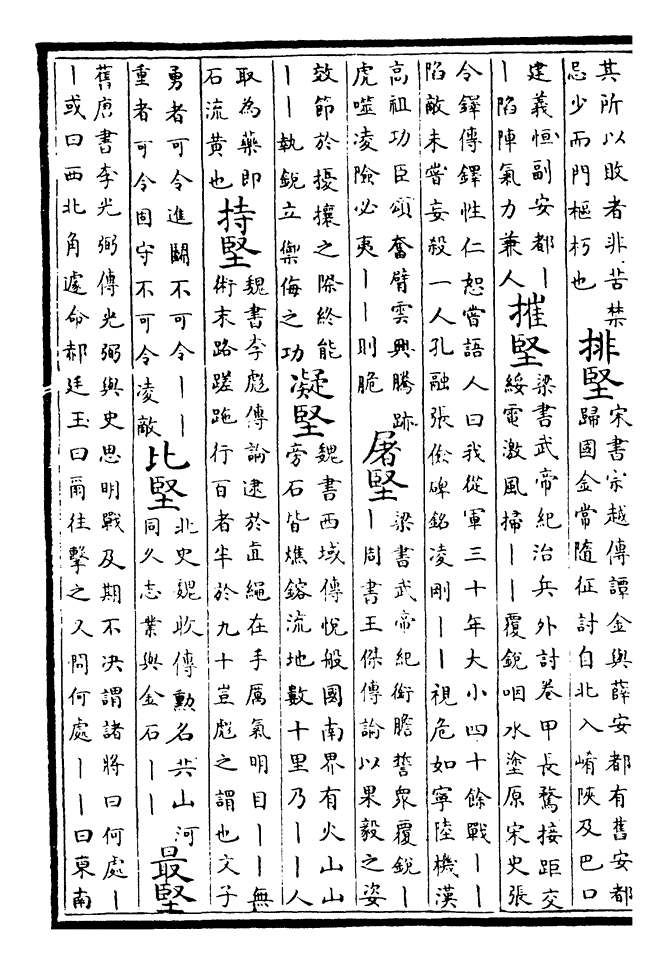 其所以敗者非苦禁
忌少而門樞朽也
排堅
宋書宗越傳譚金與薛安都有舊安都
歸國金常隨征討自北入崤陝及巴口
建義恒副安都｜
｜陷陣氣力兼人
摧堅
梁書武帝紀治兵外討卷甲長騖接距交
綏電激風掃｜｜覆銳咽水塗原宋史張
令鐸傳鐸性仁恕嘗語人曰我從軍三十年大小四十餘戰｜｜
陷敵未嘗妄殺一人孔融張儉碑銘凌剛｜｜視危如寧陸機漢
高祖功臣頌奮臂雲興騰跡
虎噬凌險必夷｜｜則脆
屠堅
梁書武帝紀銜膽誓衆覆銳｜
｜周書王傑傳論以果毅之姿
效節於擾攘之際終能
｜｜執銳立禦侮之功
凝堅
魏書西域傳悅般國南界有火山山
旁石皆燋鎔流地數十里乃｜｜人
取為藥即
石流黄也
持堅
魏書李彪傳論逮於直繩在手厲氣明目｜｜無
術末路蹉跎行百者半於九十豈彪之謂也文子
勇者可令進鬭不可令｜｜
重者可令固守不可令凌敵
比堅
北史魏收傳勲名共山河
同久志業與金石｜｜
最堅
舊唐書李光弼傳光弼與史思明戰及期不決謂諸將曰何處｜
｜或曰西北角遽命郝廷玉曰爾往擊之又問何處｜｜曰東南